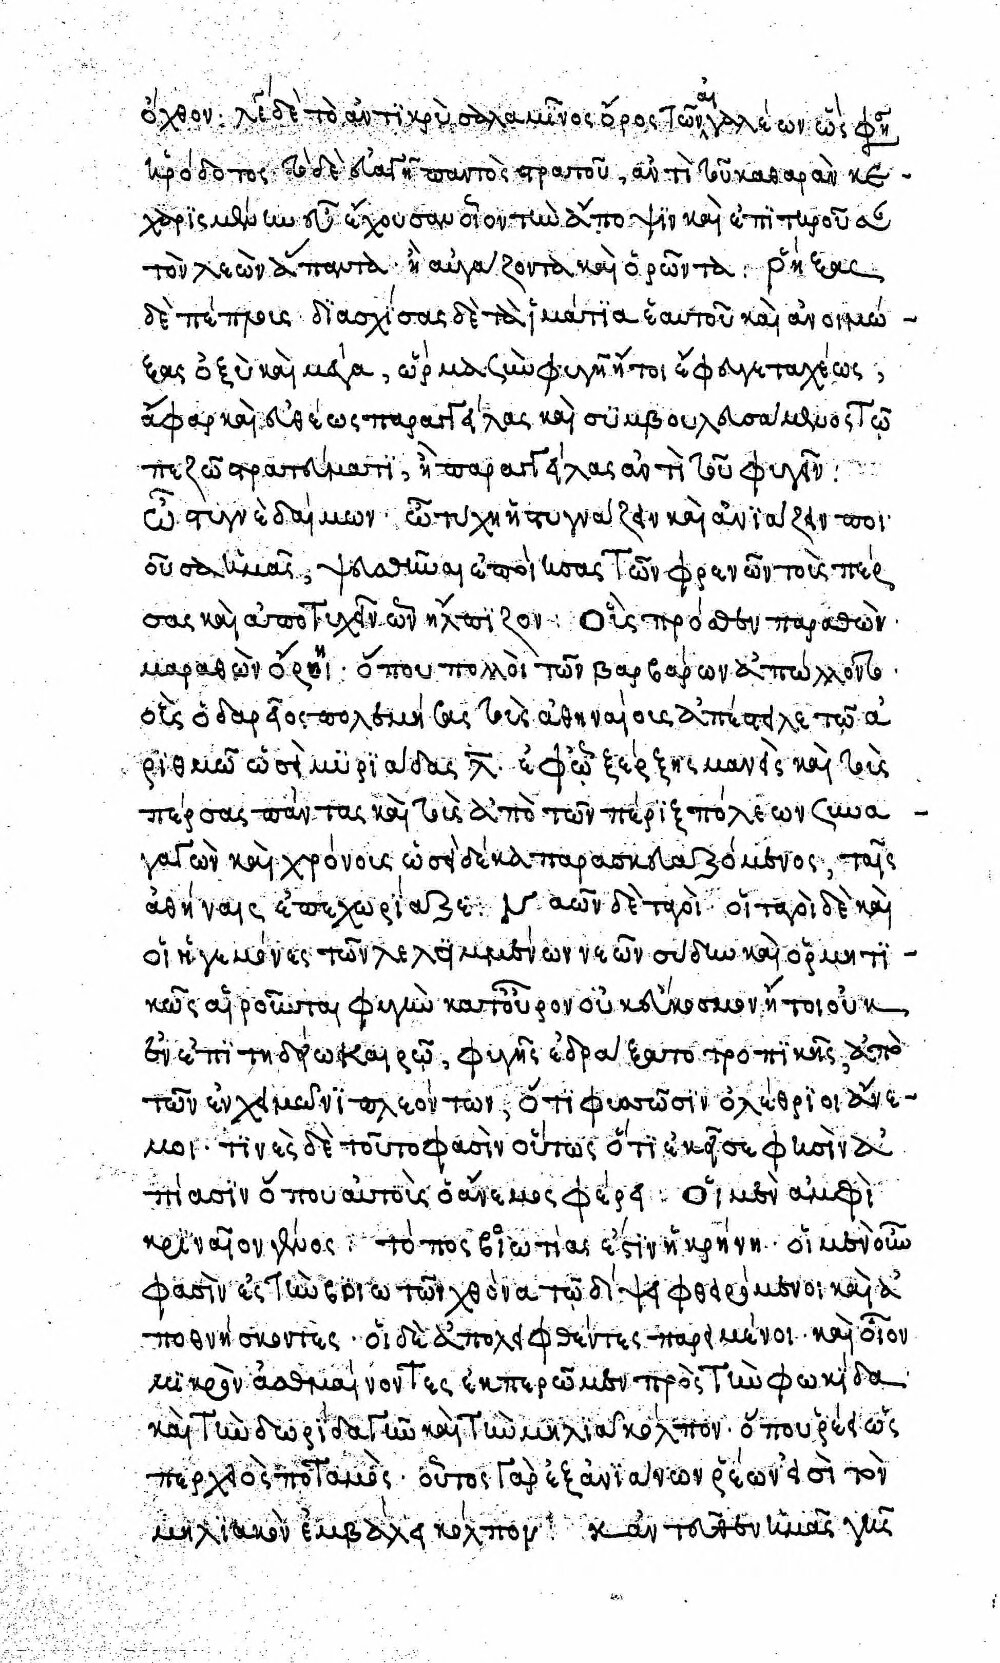 ὄχθον: λέγει δὲ τὸ ἀντϊκρὺ σαλαμῖνος ὄρος τῶν αἰγαλέων ὥς φησιν
ἡρόδοτος. τὸ δὲ εὐαγῆ παντὸς στρατοῦ, ἀντὶ τοῦ καθαρὰν κε-
χωρϊσμένην εὖ ἔχουσαν οἷον τὴν ἄποψϊν καὶ ἐπϊτηροῦσα
τὸν λεὼν ἅπαντα. ἢ αὐγάζοντα καὶ ὁρῶντα: ῥήξας
δὲ πέπλους. δϊασχίσας δὲ τὰ ἱμάτϊα ἑαυτοῦ καὶ ἀνοιμώ-
ξας ὀξὺ καὶ μέγα, ὥρμα σὺν φυγῆ ἤτοι ἔφυγε ταχέως,
ἄφαρ καὶ εὐθέως παραγγείλας καὶ συμβουλευσάμενος τῷ
πεζῶ στρατεύματι, ἢ παραγγείλας ἀντὶ τοῦ φυγεῖν:
ὦ στυγνὲ δαίμων. ὦ τύχη ἡ στυγνάζειν καὶ ἀνϊάζειν ποι
οῦσα ἡμᾶς, ψευσθῆναι ἐποίησας τῶν φρενῶν τοὺς πέρ
σας καὶ ἀποτυχεῖν ὧν ἤλπϊζον: οἷς πρόσθεν παραθὼν.
μαραθὼν ὄρει. ὅπου πολλοὶ τῶν βαρβάρων ἀπώλλοντο.
οὓς ὁ δαρεῖος πολεμήσας τοῖς ἀθηναίοις ἀπέστειλε τῷ ἀ
ρϊθμῶ ὡσεὶ μϋρϊάδας λ. ἐφ ᾧ ξέρξης μανεὶς καὶ τοὺς
πέρσας πάντας καὶ τοὺς ἀπὸ τῶν πέρϊξ πόλεων συνα-
γαγὼν καὶ χρόνοις ὡσεὶ δέκα παρασκευαζόμενος, ταῖς
ἀθήναις ἐπεχωρίαζε: Ναῶν δὲ ταγοί. οἱ ταγοὶ δὲ καὶ
οἱ ἡγεμόνες τῶν λελειμμένων νεῶν σύδην καὶ ὁρμητϊ-
κῶς αἱροῦνται φυγὴν κατ οὖρον οὐκ εὔκοσμον ἤτοι οὐκ
ἐν ἐπϊτηδείω καιρῷ, φυγῆς ἐδράξαντο τροπϊκῆς, ἀπὸ
τῶν ἐν χειμῶνϊ πλεόντων, ὅτϊ φυσῶσϊν ὀλέθρϊοι ἄνε-
μοι. τϊνὲς δὲ τοῦτο φασὶν οὕτως ὅτϊ ἐκεῖσε φησὶν ἀ
πίασϊν ὅπου αὐτοὺς ὁ ἄνεμος φέρει: οἱ μὲν ἀμφὶ
κρϊναῖον γένος: τόπος βοιωτίας ἐστὶν ἡ κρήνη. οἱ μὲν οὖν
φασὶν ἐς τὴν βοιωτῶν χθόνα τῷ δίψει φθειρόμενοι καὶ ἀ
ποθνήσκοντες. οἱ δὲ ἀπολειφθέντες παρειμένοι. καὶ οἷον
μϊκρὸν ἀσθμαίνοντες ἐκπερῶμεν πρὸς τὴν φωκίδα
καὶ τὴν δωρίδα γῆν καὶ τὴν μηλϊᾶ κόλπον. ὅπου ῥέει ὡς
περχειὸς ποταμός. οὗτος γὰρ ἐξ αἰνϊάνων ῥέων εἰσὶ τὸν
μηλϊακὸν ἐμβάλει κόλπον: κἀντεῦθεν ἡμᾶς γῆς